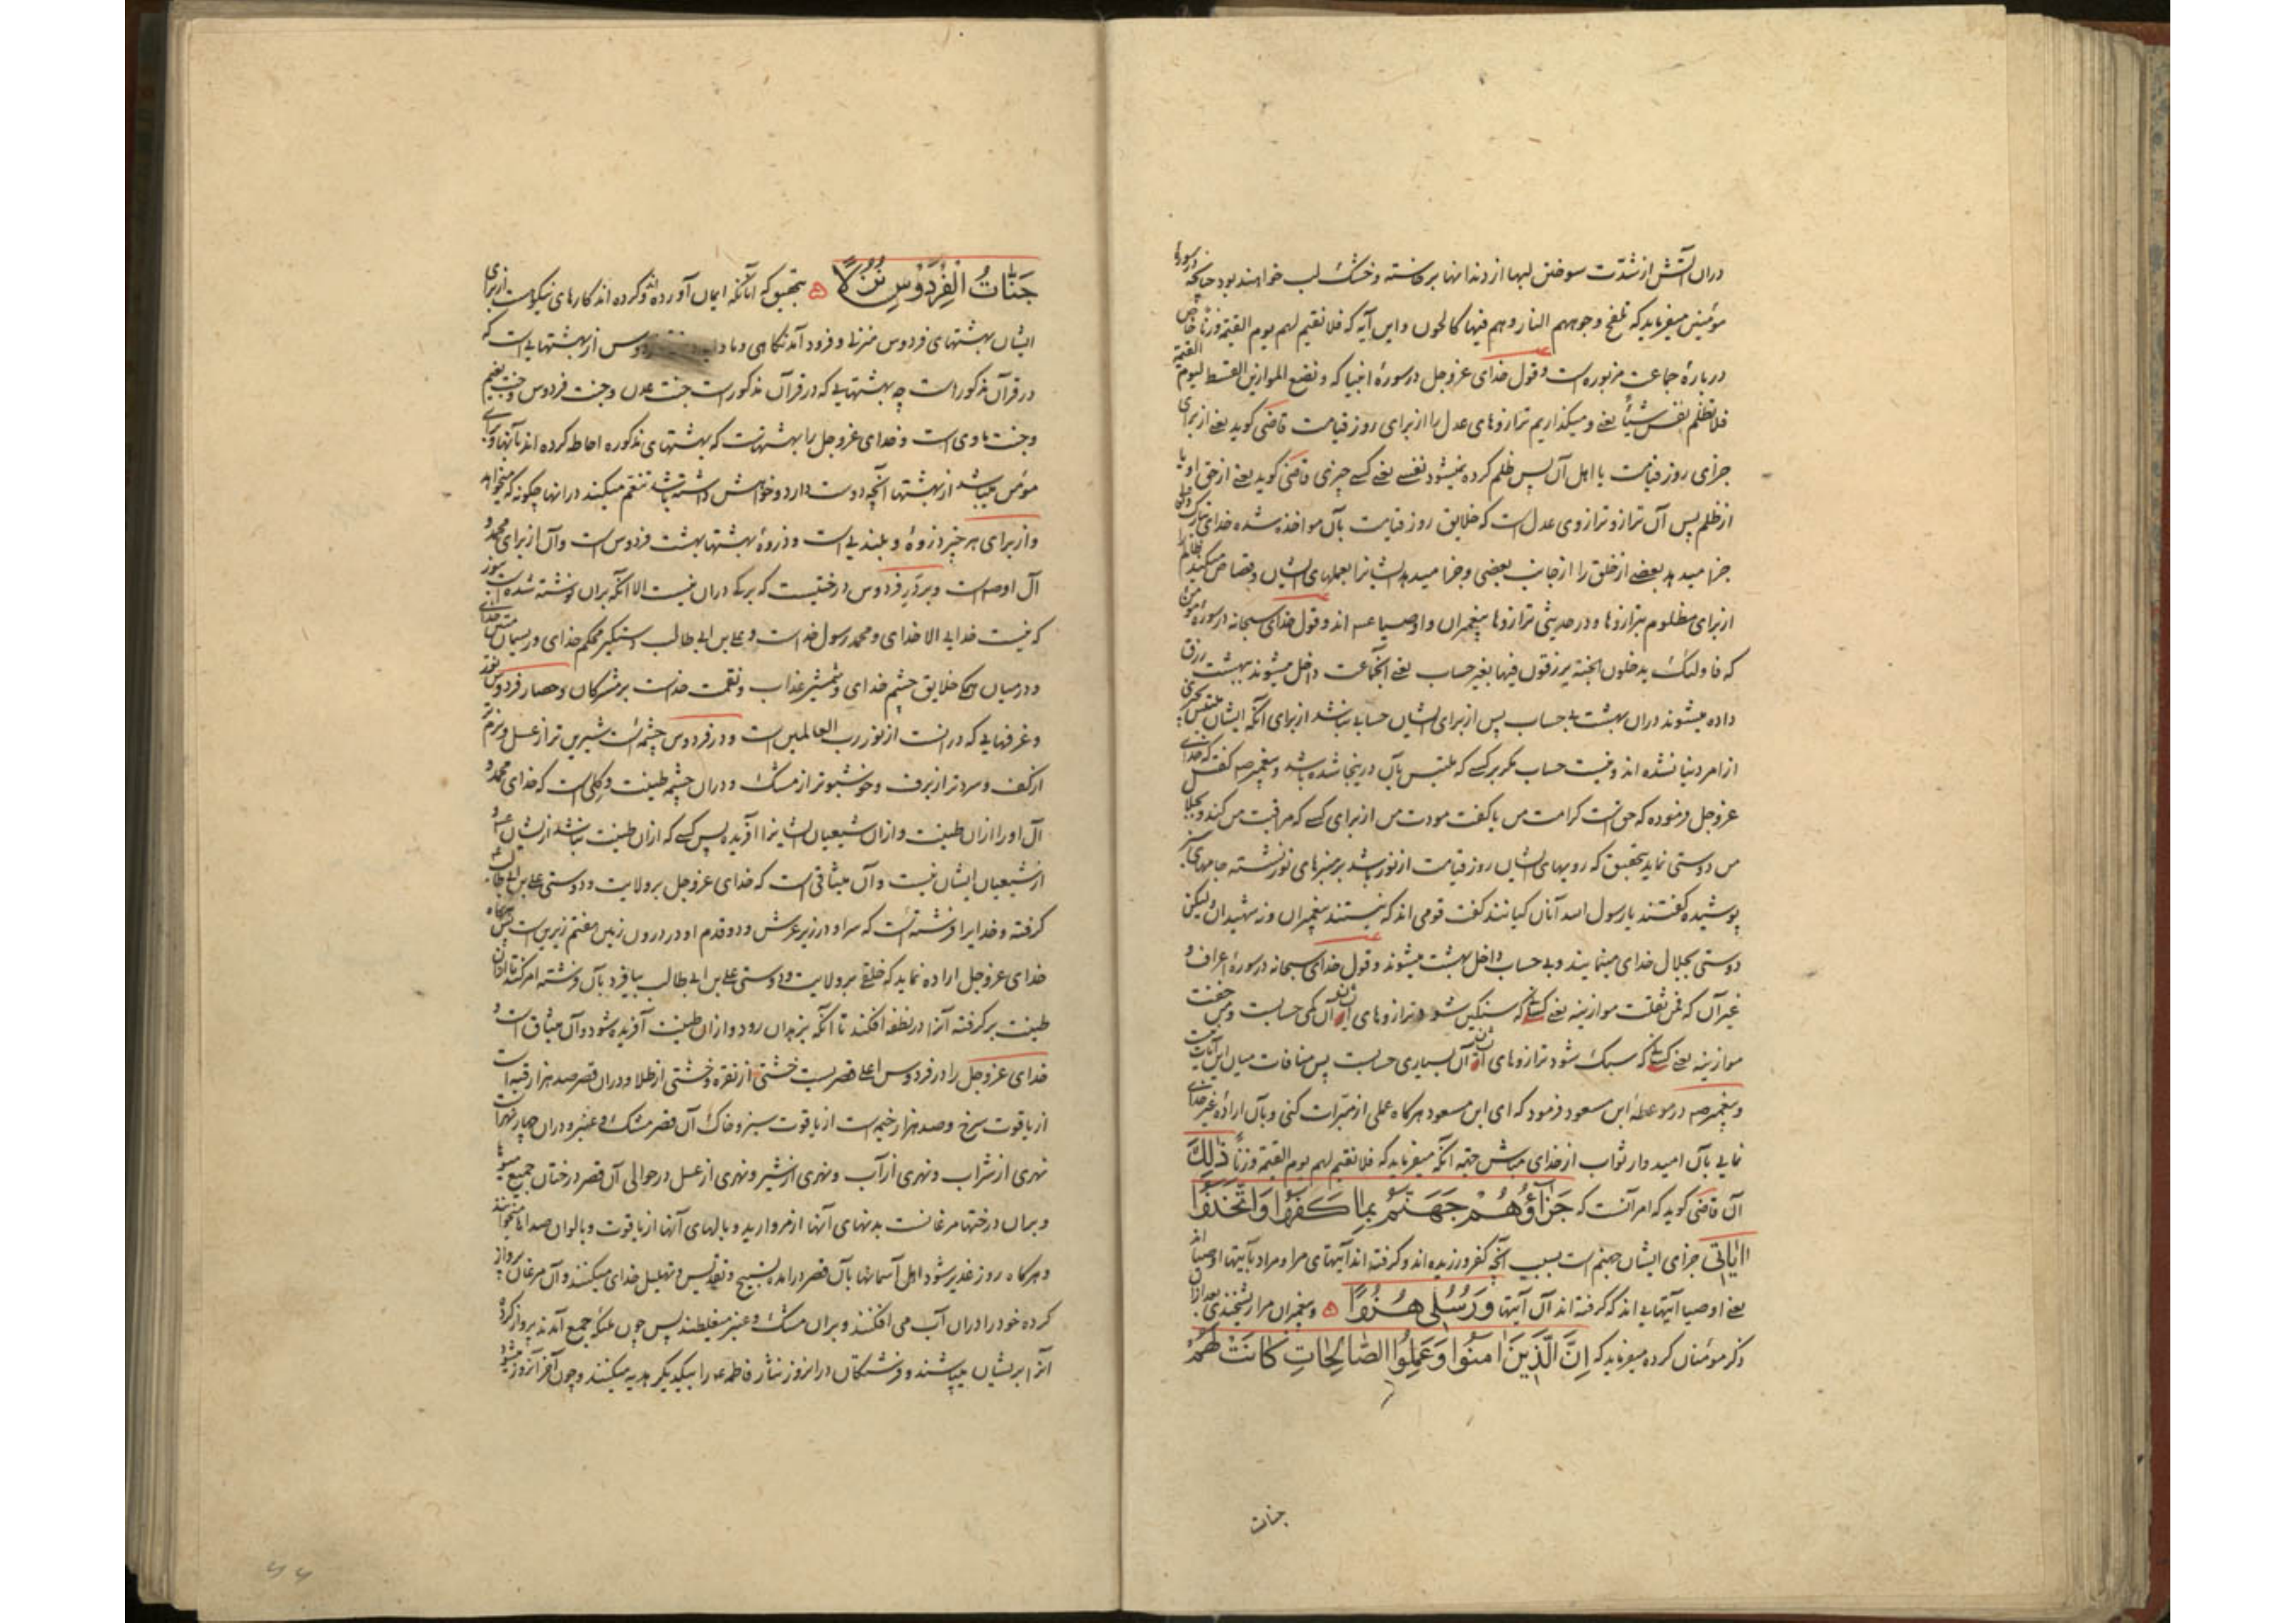 دران آتش از شدت سوختن لبها از دندانها برخاسته و خشک لب خواهند بود چنانچه در سورهٔ
مؤمنین میفرماید که تلفح وجوههم النار وهم فیها کالحون و این آیه که فلا نقیم لهم یوم القیمة وزنا خاص
دربارهٔ جماعت مزبوره است و قول خدای عزوجل در سورهٔ انبیا که ونضع الموازین القسط لیوم القیمة
فلا تظلم نفس شیئا یعنے و میگذاریم ترازوهای عدل را از برای روز قیامت قاضی کوید یعنے از برای
جزای روز قیامت با اهل آن پس ظلم کرده نمیشود نفسے یعنے کسے چیزی قاضی کوید یعنے از حق او یا
از ظلم پس آن ترازو ترازوی عدل است که خلایق روز قیامت بآن مواخذه شده خدای تبارک وتعالی
جزا میدهد بعضے از خلق را از جانب بعضی و جزا میدهد ایشانرا بعملهای ایشان و قصاص میکند ظالم را
از برای مظلوم بترازوها و در حدیثی ترازوها پیغمبران و اوصیا عـ اند و قول خدای سبحانه در سورهٔ مؤمن
که فاولئک یدخلون الجنة یرزقون فیها بغیر حساب یعنے آنجماعت داخل میشوند ببهشت رزق
داده میشوند دران بهشت بے حساب پس از برای ایشان حسابے نباشد از برای آنکه ایشان متلبس بچیزی
از امر دنیا نشده اند و نیست حساب مکر بر کسے که متلبس بآن در اینجا شده باشد و پیغمبر صـ کفت که خدای
عزوجل فرموده که حق است کرامت من یا کفت مودت من از برای کسے که مراقبت من کند و بجلال
من دوستی نماید بتحقیق که رویهای ایشان روز قیامت از نور باشد بر منبرهای نور نشسته جامهای سبز
پوشیده کفتند یا رسول الله آنان کیانند کفت قومی اند که نیستند پیغمبران و نه شهیدان ولیکن
دوستی بجلال خدای مینمایند و بے حساب داخل بهشت میشوند و قول خدای سبحانه در سورهٔ اعراف و
غیر آن که فمن ثقلت موازینه یعنے کسانے که سنکین شود ترازوهای ایشان آن کمی حسابست ومن خفت
موازینه یعنے کسانے که سبک شود ترازوهای ایشان آن بسیاری حسابست پس منافات میان این آیات نیست
و پیغمبر صـ در موعظهٔ ابن مسعود فرمود که ای ابن مسعود هرکاه عملی از مبرات کنی و بآن ارادهٔ غیر خدای
نمایے بآن امیدوار ثواب از خدای مباش جهة آنکه میفرماید که فلا نقیم لهم یوم القیمة وزنا ذٰلِكَ
آن قاضی کوید که امر آنست که جَزَآؤُهُمْ جَهَنَّمُ بِمَا كَفَرُوا وَاتَّخَذُوا
اٰيَاتِی جزای ایشان جهنم است بسبب آنچه کفر ورزیده اند و کرفته اند آیتهای مرا و مراد بآیتها اوصیا اند
یعنے اوصیا آیتهایے اند که کرفته اند آن آیتها وَرُسُلِی هُزُوًا و پیغمبران مرا ریشخندی بعد ازان
ذکر مومنان کرده میفرماید که اِنَّ الَّذِينَ اٰمَنُوا وَعَمِلُوا الصَّالِحَاتِ كَانَتْ لَهُمْ
جنات
جَنَّاتُ الْفِرْدَوْسِ نُزُلًا بتحقیق که آنانکه ایمان آورده اند و کرده اند کارهای نیکو است از برای
ایشان بهشتهای فردوس منزلے و فرود آمدنکاهی و ... فردوس از بهشتهایے است که
در قرآن مذکور است چه بهشتهایے که در قرآن مذکور است جنت عدن و جنت فردوس و جنت نعیم
و جنت ماوی است و خدای عزوجل را بهشتهاست که بهشتهای مذکوره احاطه کرده اند بآنها و برای
مومن میباشد از بهشتها آنچه دوست دارد و خواهش داشته باشد تنعم میکند در آنها چکونه که میخواهد
و از برای هر چیز ذروهٔ و بلندیے است و ذروهٔ بهشتها بهشت فردوس است و آن از برای محمد و
آل او صـ است و بر در فردوس درختیست که برکے دران نیست الا آنکه بران نوشته شده است بنور
که نیست خدایے الا خدای و محمد رسول خداست و علے بن ابے طالب دستکیر محکم خدای و ریسمان متین خدای
و در میان همکے خلایق چشم خدای و شمشیر عذاب و نقمت خداست بر مشرکان و حصار فردوس نور
و غرفهایے که در آنست از نور رب العالمین است و در فردوس چشمه است شیرین تر از عسل و نرم تر
از کف و سردتر از برف و خوشبوتر از مشک و دران چشمه طینت و کلی است که خدای محمد و
آل او را ازان طینت و ازان شیعیان ایشانرا آفریده پس کسے که ازان طینت نباشد از ایشان عـ و
از شیعیان ایشان نیست و آن میثاقی است که خدای عزوجل بر ولایت و دوستی علے بن ابے طالب
کرفته و خدایرا فرشته است که سر او در زیر عرش و دو قدم او در درون زمین هفتم زیرین است پس هرکاه
خدای عزوجل اراده نماید که خلقے بر ولایت و دوستی علے بن ابے طالب بیافرد بآن فرشته امر کند تا ازان
طینت برکرفته آنرا در نطفه افکند تا آنکه بزهدان رود و ازان طینت آفریده شود و آن میثاق است و
خدای عزوجل را در فردوس اعلے قصریست خشتی از نقره و خشتی از طلا و دران قصر صد هزار قبه است
از یاقوت سرخ و صد هزار خیمه است از یاقوت سبز و خاک آن قصر مشک و عنبر و دران چهار نهر است
نهری از شراب و نهری از آب و نهری از شیر و نهری از عسل در حوالی آن قصر درختان جمیع میوها
و بران درختها مرغانست بدنهای آنها از مروارید و بالهای آنها از یاقوت و بالوان صداها میخوانند
و هرکاه روز غدیر شود اهل آسمانها بآن قصر درآمده تسبیح و تقدیس و تهلیل خدای میکنند و آن مرغان پرواز
کرده خود را دران آب می افکنند و بران مشک و عنبر میغلطند پس چون ملائکه جمیع آمدند پرواز کرده
آنرا بر ایشان میپاشند و فرشتکان در آنروز نثار فاطمه عـ را بیکدیکر هدیه میکنند و چون آخر آنروز میشود